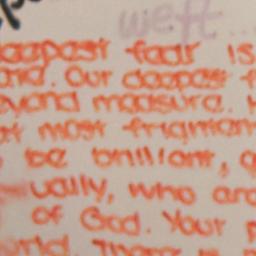 weft...
deepest fear is
and. Our deepest f
eyond measure.
at most frighten
be brilliant, g
ually, who are
of God. Your p
orld. There is n